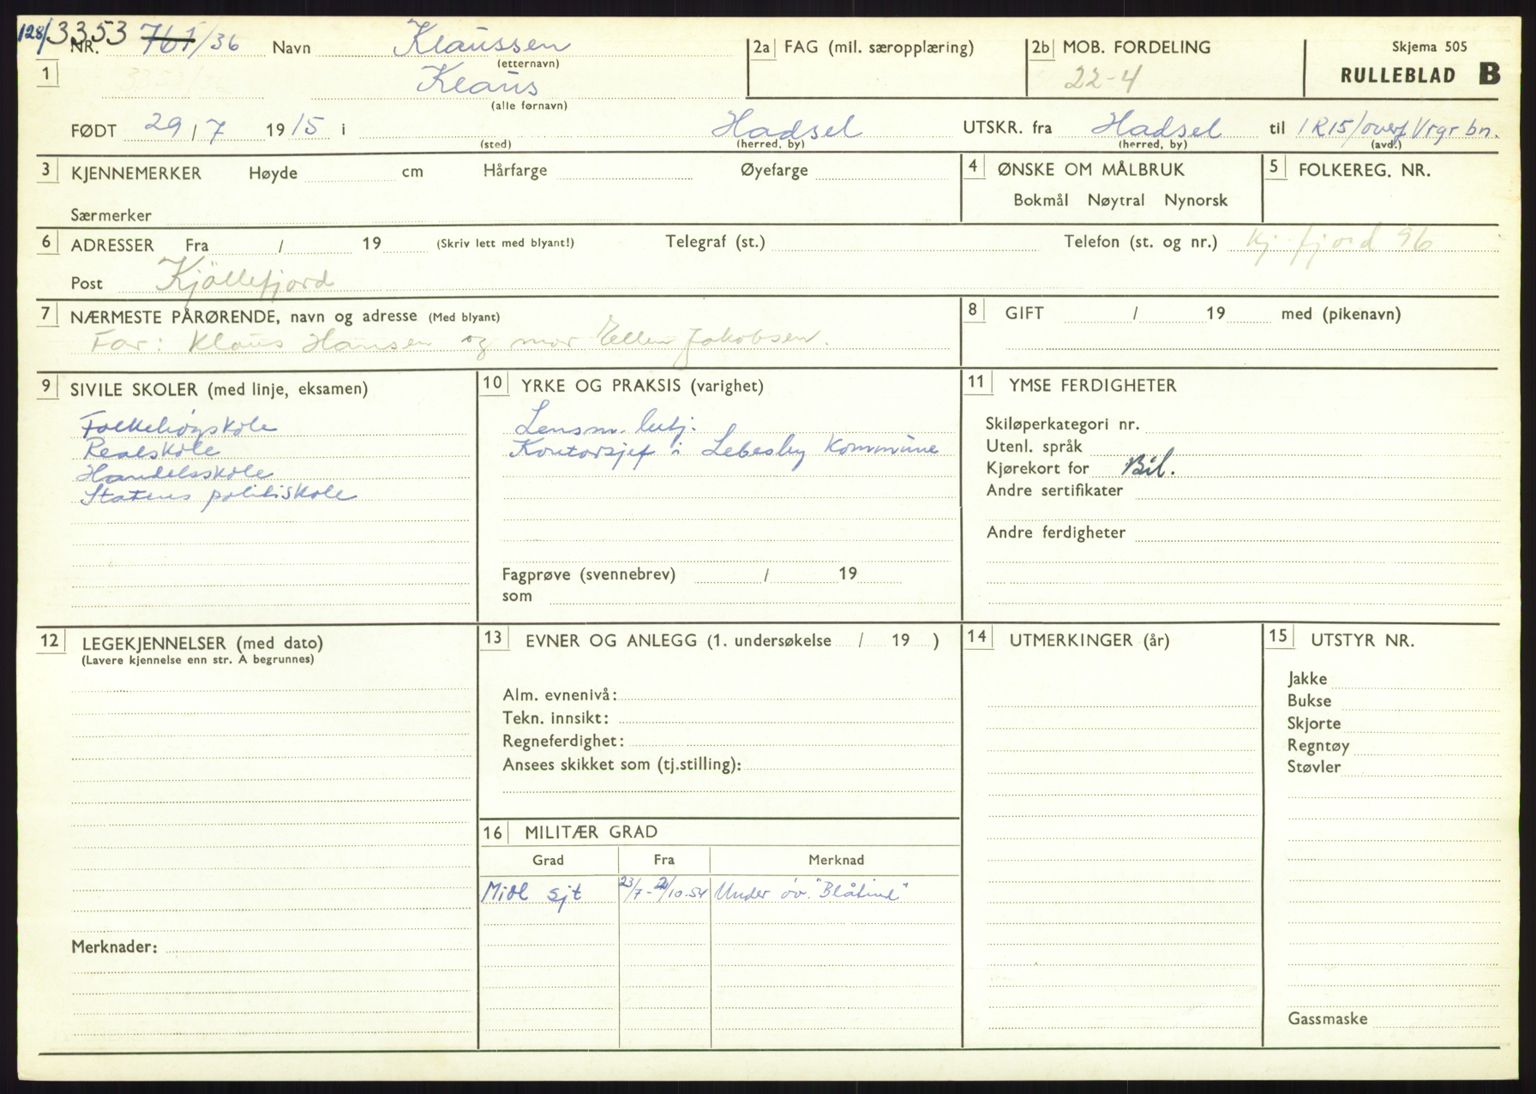 128/3353
NR. 761/36 Navn Klaussen
(etternavn)
1 Klaus
(alle fornavn)
2a FAG (mil. særopplæring)
2b MOB. FORDELING
22-4
Skjema 505
RULLEBLAD B
FØDT 29/7 1915 i Hadsel UTSKR. fra Hadsel til IR15/overf Vrgr bn.
(sted) (herred, by) (herred, by) (avd.)
3 KJENNEMERKER Høyde cm Hårfarge Øyefarge
Særmerker
4 ØNSKE OM MÅLBRUK
Bokmål Nøytral Nynorsk
5 FOLKEREG. NR.
6 ADRESSER Fra / 19 (Skriv lett med blyant!) Telegraf (st.) Telefon (st. og nr.) Kj.fjord 96
Post Kjöllefjord
7 NÆRMESTE PÅRØRENDE, navn og adresse (Med blyant)
Far: Klaus Hansen og mor Ellen Jakobsen.
8 GIFT / 19 med (pikenavn)
9 SIVILE SKOLER (med linje, eksamen)
Folkehøgskole
Realskole
Handelsskole
Statens politiskole
10 YRKE OG PRAKSIS (varighet)
Lensm. betj.
Kontorsjef i Lebesby Kommune
Fagprøve (svennebrev) / 19
som
11 YMSE FERDIGHETER
Skiløperkategori nr.
Utenl. språk
Kjørekort for Bil.
Andre sertifikater
Andre ferdigheter
12 LEGEKJENNELSER (med dato)
(Lavere kjennelse enn str. A begrunnes)
Merknader:
13 EVNER OG ANLEGG (1. undersøkelse / 19 )
Alm. evnenivå:
Tekn. innsikt:
Regneferdighet:
Ansees skikket som (tj.stilling):
14 UTMERKINGER (år)
15 UTSTYR NR.
Jakke
Bukse
Skjorte
Regntøy
Støvler
Gassmaske
16 MILITÆR GRAD
Grad Fra Merknad
Midl sjt 23/7- /10-54 Under öv. "Blåtind"